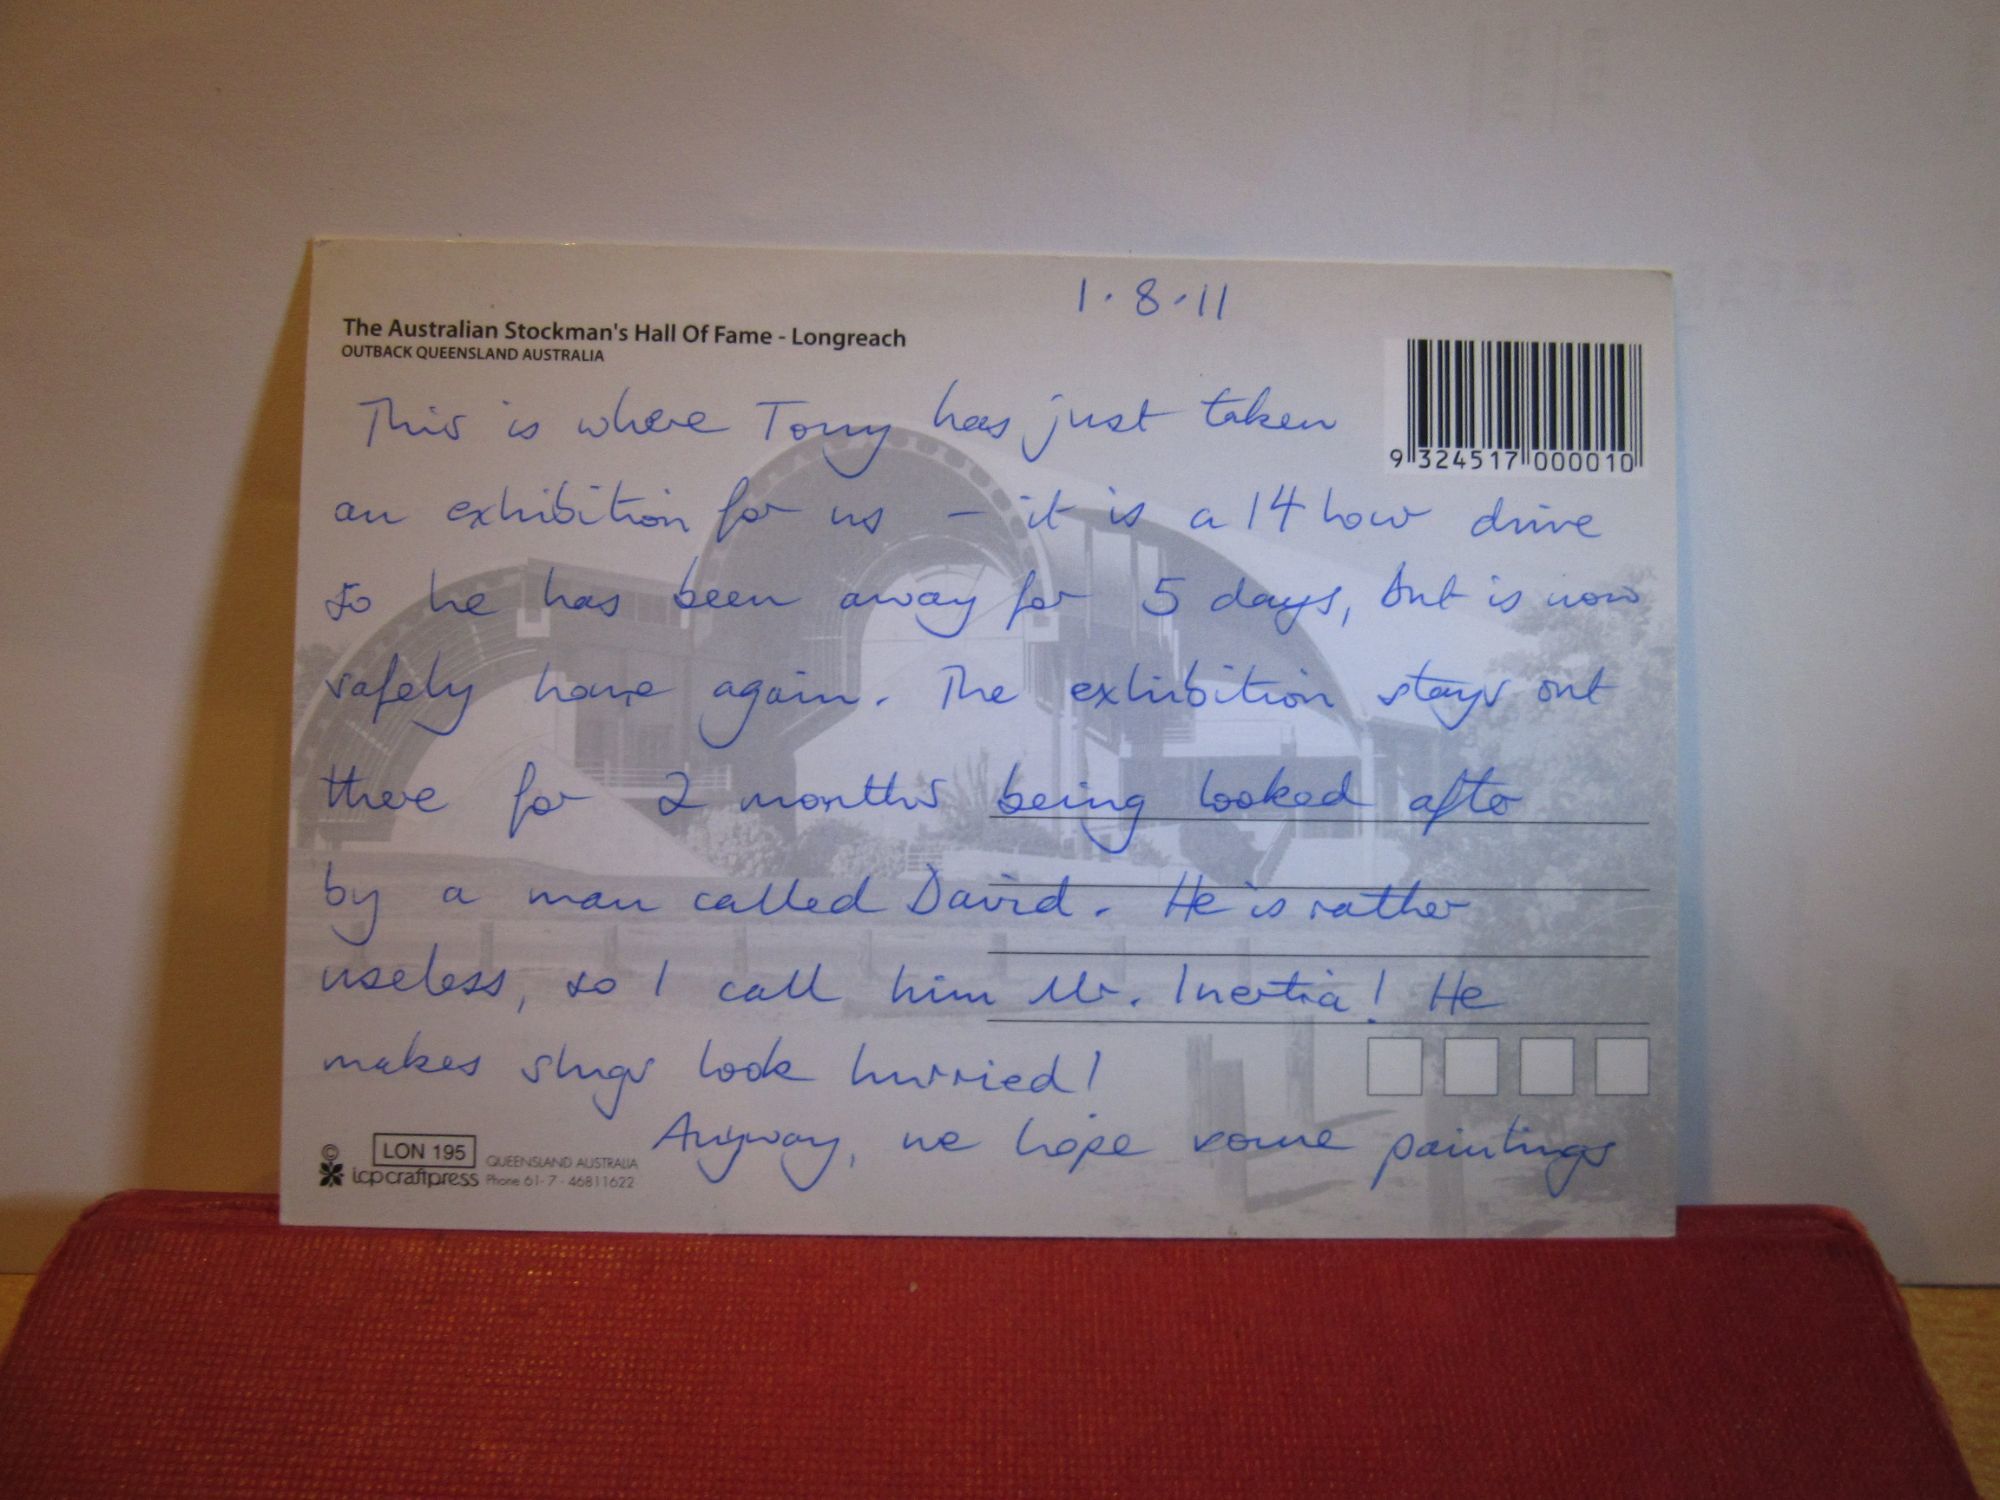 1.8.11
The Australian Stockman's Hall Of Fame - Longreach
OUTBACK QUEENSLAND AUSTRALIA
9 324517 000010
This is where Tony has just taken
an exhibition for us - it is a 14 hour drive
so he has been away for 5 days, but is now
safely home again. The exhibition stays out
there for 2 months being looked after
by a man called David. He is rather
useless, so I call him Mr. Inertia! He
makes slugs look hurried!
Anyway, we hope some paintings
© LON 195
icpcraftpress QUEENSLAND AUSTRALIA
Phone 61-7-46811622